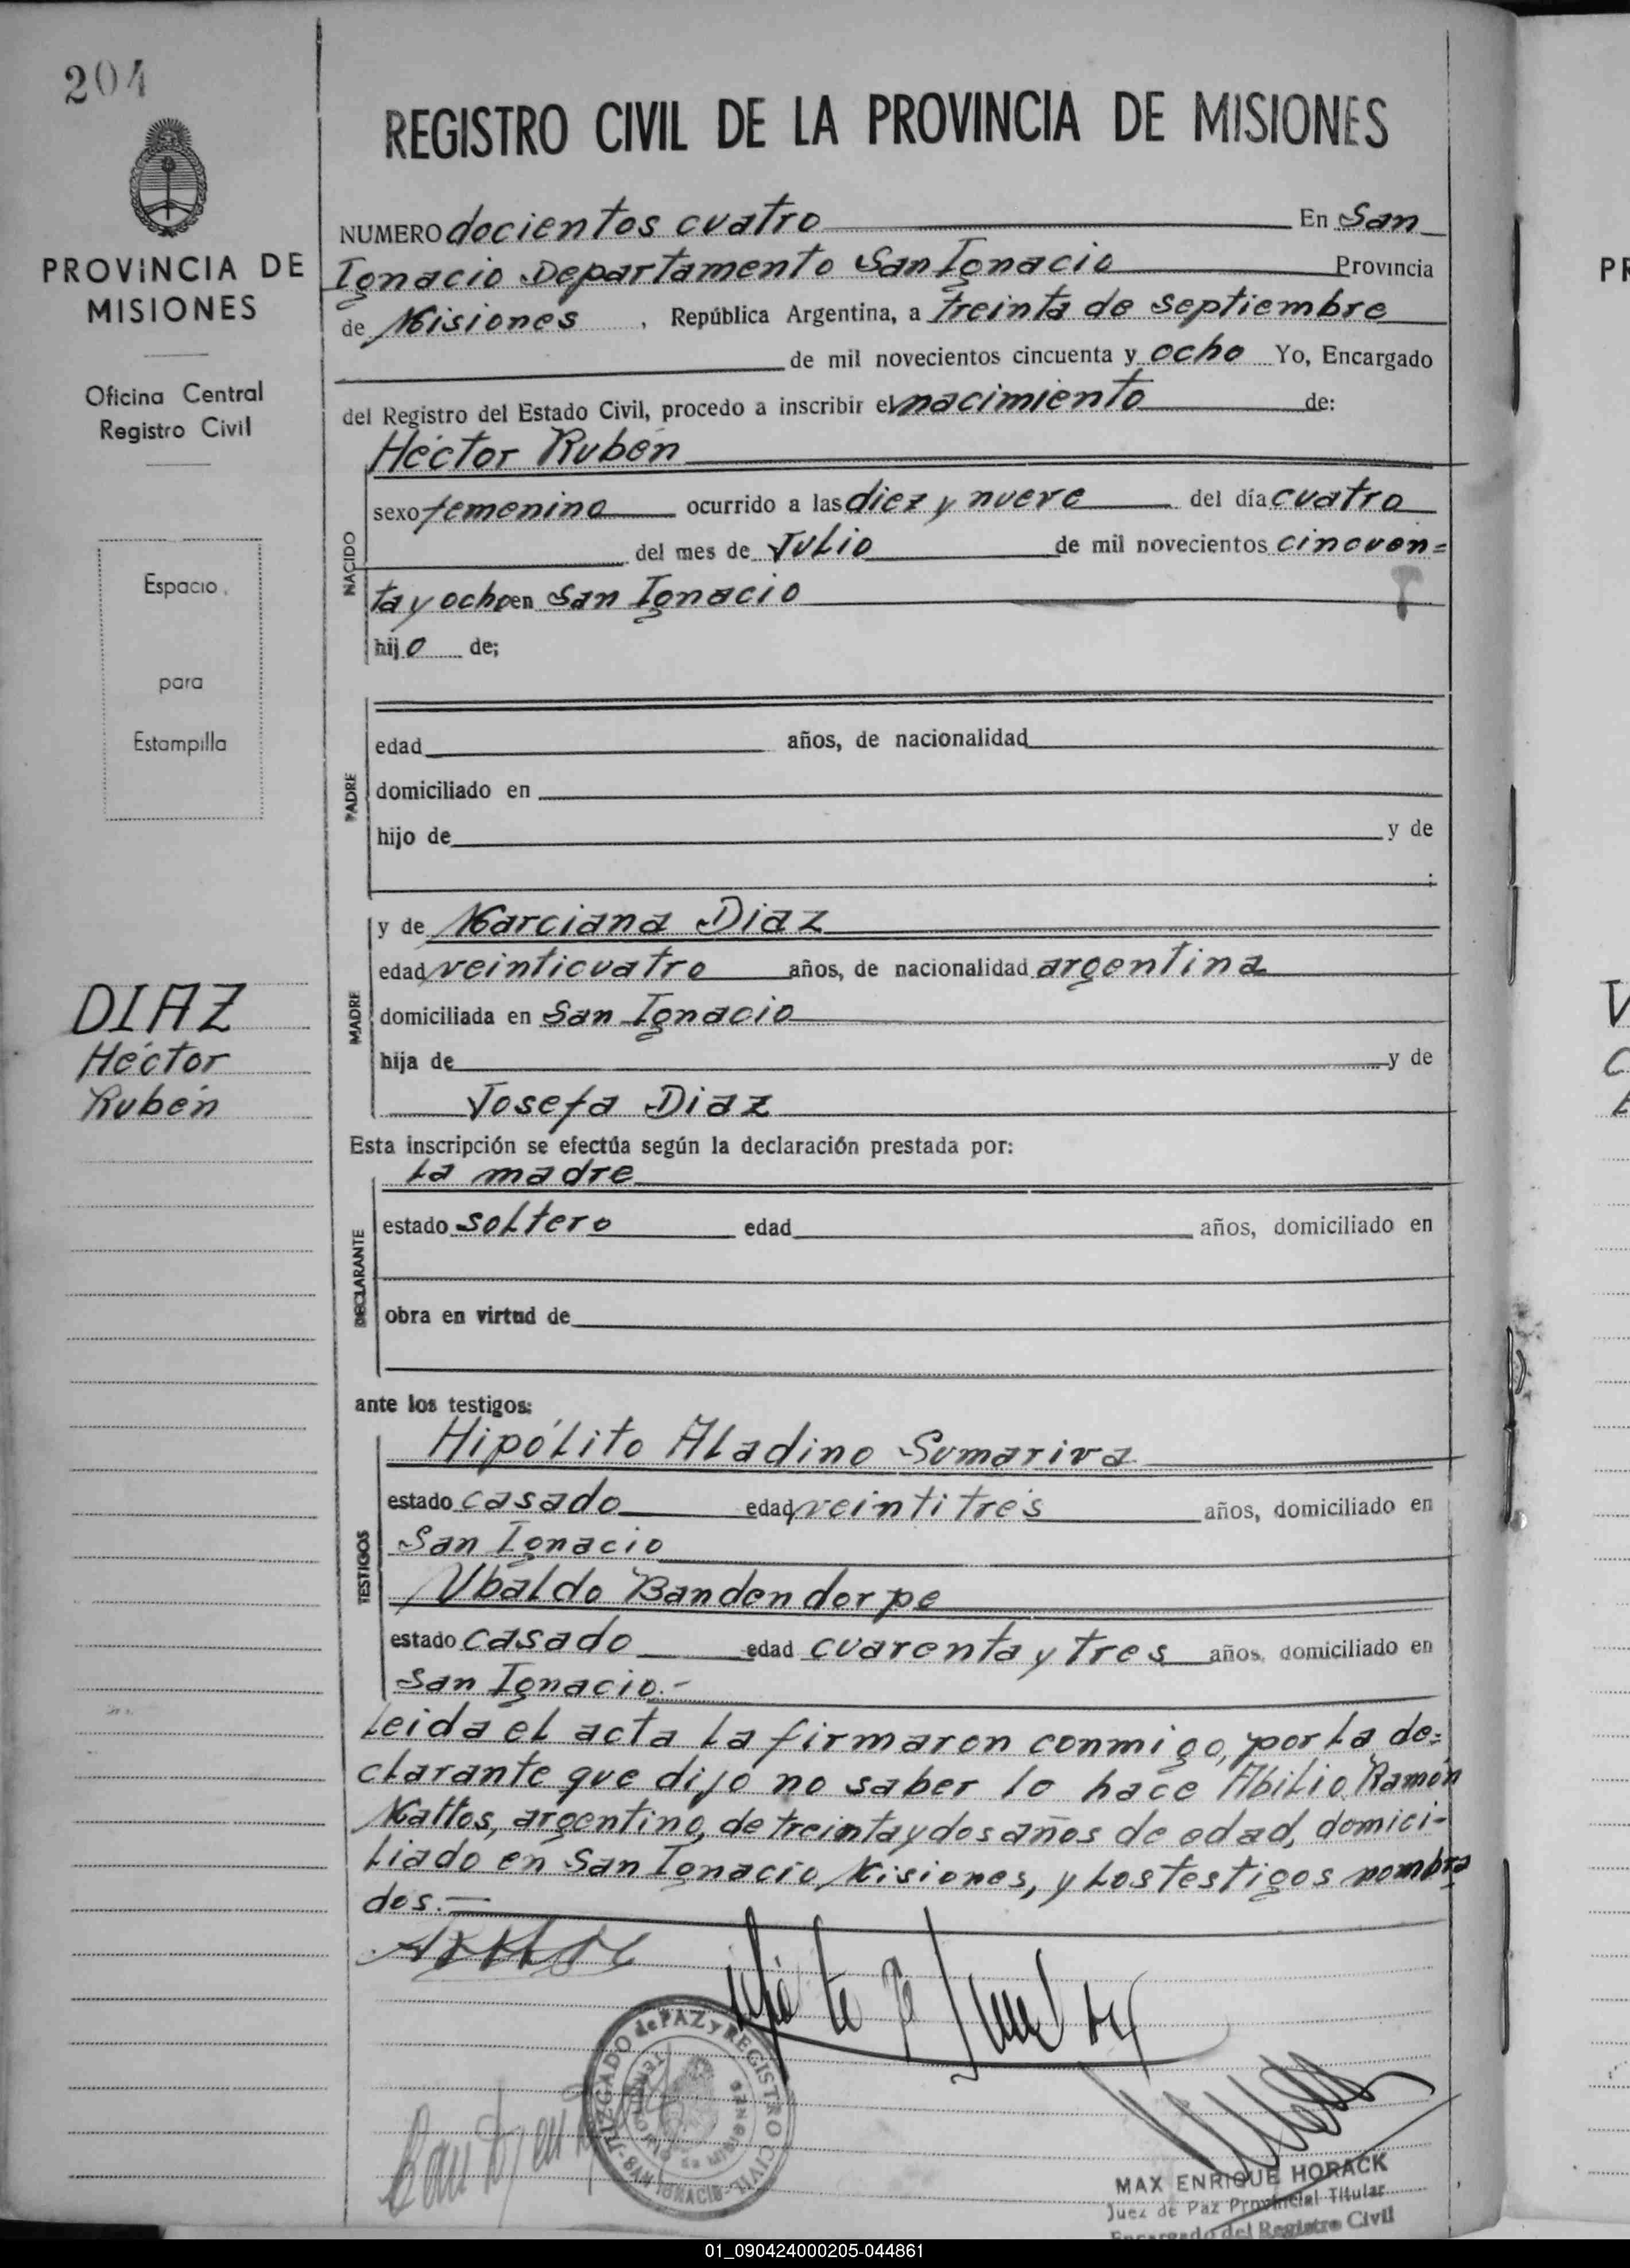 204
REGISTRO CIVIL DE LA PROVINCIA DE MISIONES
PROVINCIA DE
MISIONES
Oficina Central
Registro Civil
Espacio
para
Estampilla
DIAZ
Héctor
Rubén
NUMERO docientos cuatro En San
Ignacio Departamento San Ignacio Provincia
de Misiones , República Argentina, a treinta de septiembre
de mil novecientos cincuenta y ocho Yo, Encargado
del Registro del Estado Civil, procedo a inscribir el nacimiento de:
Héctor Rubén
NACIDO
sexo femenino ocurrido a las diez y nueve del día cuatro
del mes de Julio de mil novecientos cincuen=
ta y ocho en San Ignacio
hijo de;
PADRE
edad años, de nacionalidad
domiciliado en
hijo de y de
;
MADRE
y de Marciana Diaz
edad veinticuatro años, de nacionalidad argentina
domiciliada en San Ignacio
hija de y de
Josefa Diaz
Esta inscripción se efectúa según la declaración prestada por:
La madre
DECLARANTE
estado soltero edad años, domiciliado en
obra en virtud de
ante los testigos:
TESTIGOS
Hipólito Aladino Sumariva
estado casado edad veintitrés años, domiciliado en
San Ignacio
Ubaldo Bandendorpe
estado casado edad cuarenta y tres años, domiciliado en
San Ignacio.-
Leida el acta la firmaron conmigo, por la de=
clarante que dijo no saber lo hace Abilio Ramón
Mattos, argentino, de treinta y dos años de edad, domici-
liado en San Ignacio, Misiones, y los testigos nombra
dos.—
JUZGADO de PAZ y REGISTRO CIVIL
SAN IGNACIO
MAX ENRIQUE HORACK
Juez de Paz Provincial Titular
Encargado del Registro Civil
01_090424000205-044861